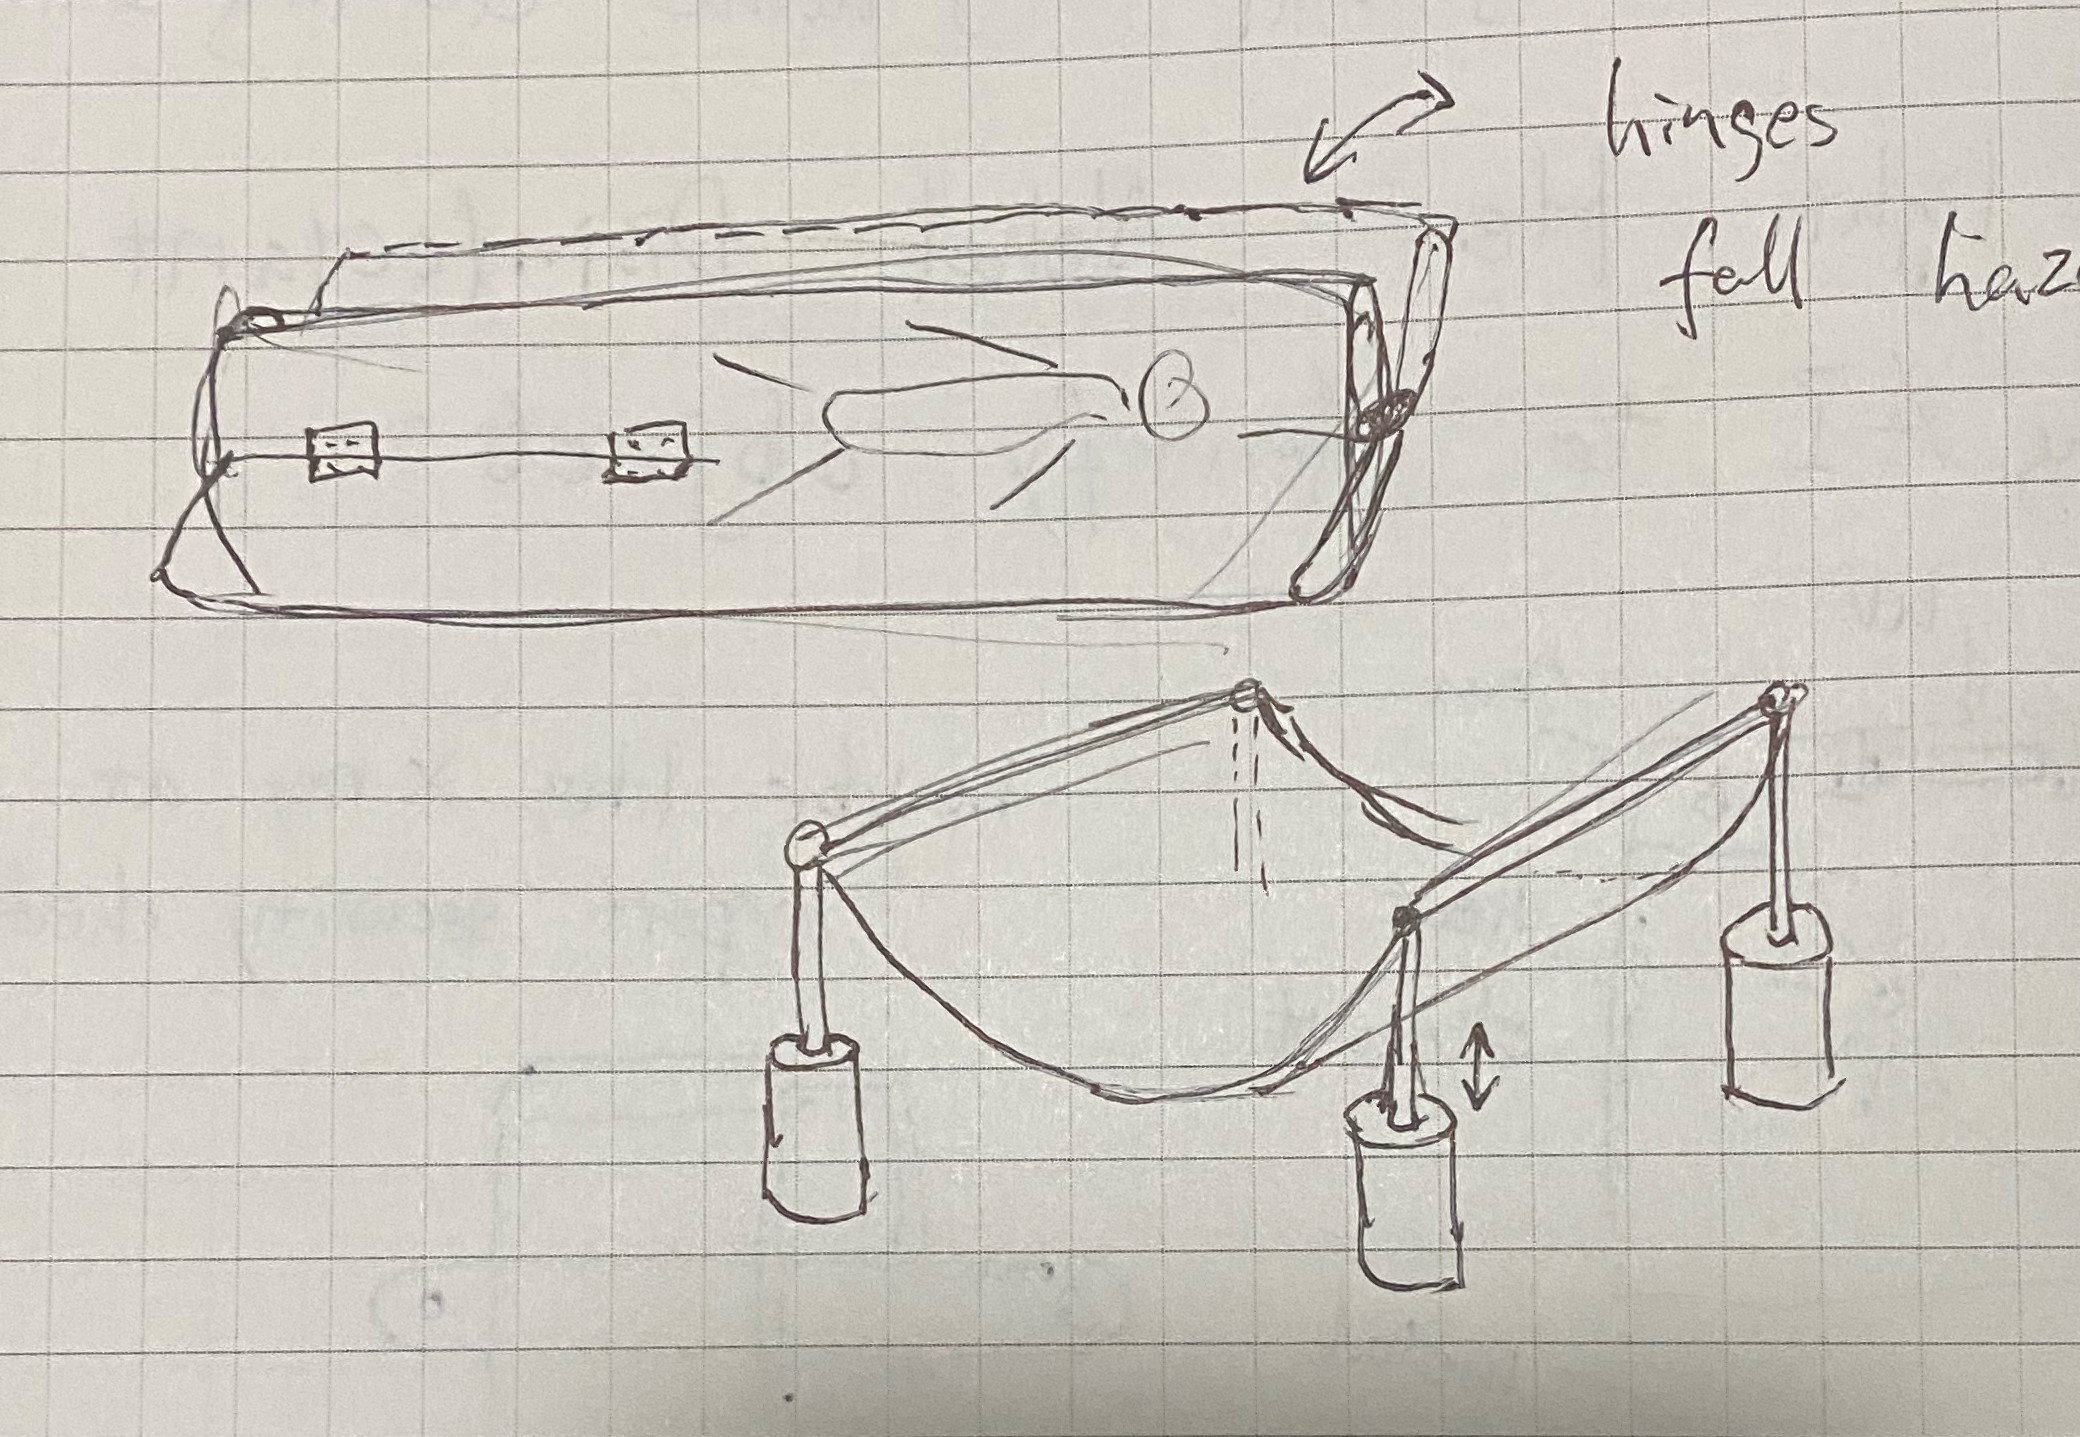 hinges
fall haz